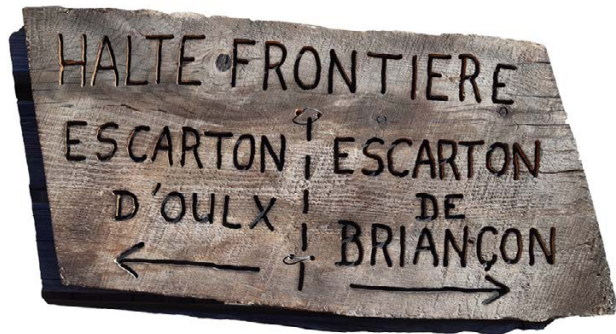 HALTE FRONTIERE
ESCARTON
D'OULX
ESCARTON
DE
BRIANÇON